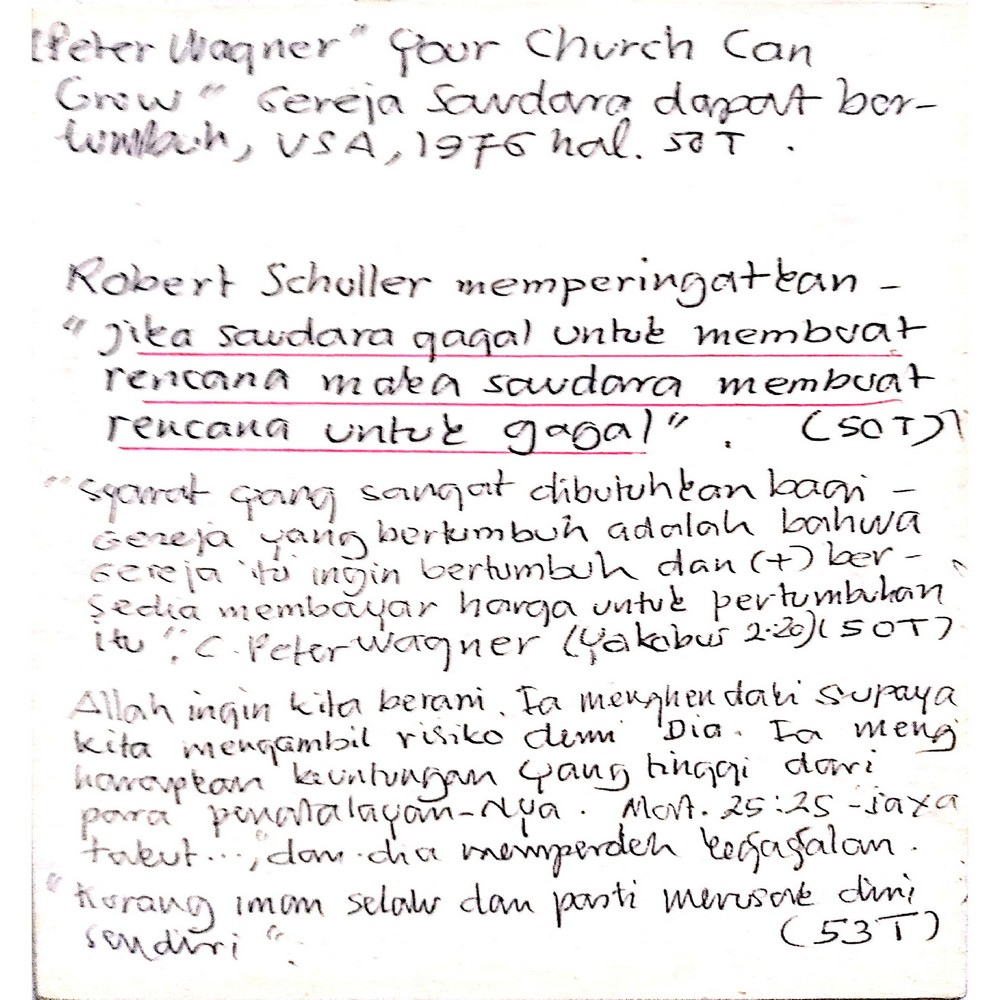 Peter Wagner" Your Church Can
Grow" Gereja Saudara dapat ber-
tumbuh, USA, 1976 hal. 50T .
Robert Schuller memperingatkan -
"Jika saudara gagal untuk membuat
rencana maka saudara membuat
rencana untuk gagal". (50T)
"Syarat yang sangat dibutuhkan bagi -
Gereja yang bertumbuh adalah bahwa
Gereja itu ingin bertumbuh dan (+) ber-
sedia membayar harga untuk pertumbuhan
itu". C. Peter Wagner (Yakobus 2:20) (50T)
Allah ingin kita berani. Ia menghendaki supaya
kita mengambil risiko demi Dia. Ia meng
harapkan keuntungan yang tinggi dari
para penatalayan-Nya. Mat. 25:25 - saya
takut..., dan dia memperdeh kegagalan.
"Kurang iman selalu dan pasti merusak diri
sendiri". (53T)